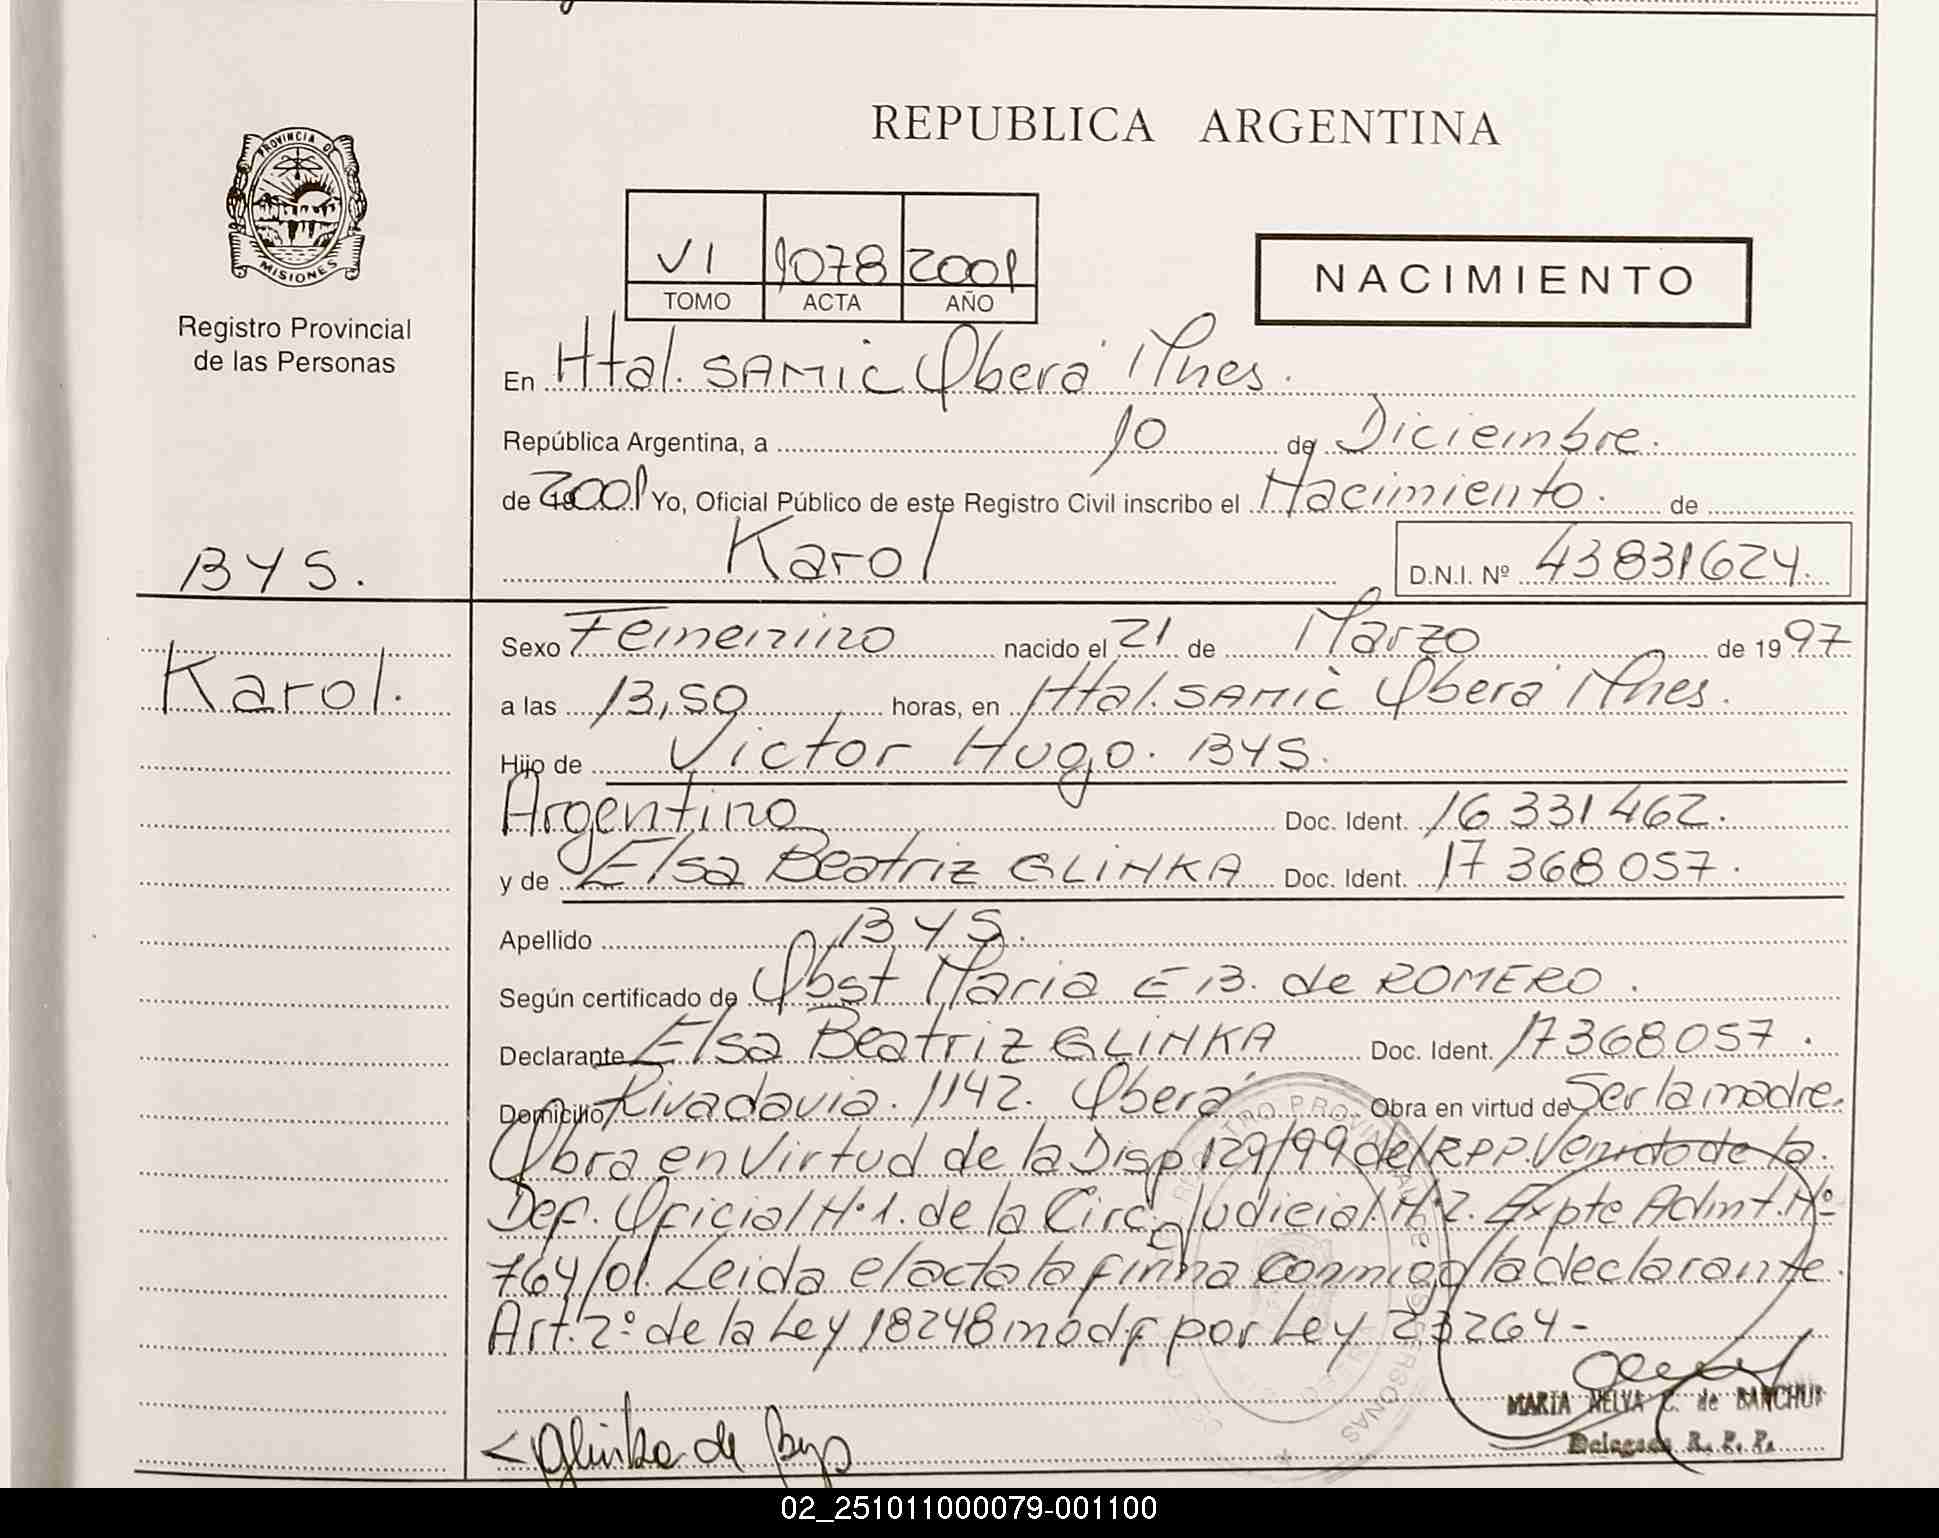 REPUBLICA ARGENTINA
PROVINCIA DE
MISIONES
Registro Provincial
de las Personas
VI 1078 2001
TOMO ACTA AÑO
NACIMIENTO
En Htal. SAMIC Oberá Mnes.
República Argentina, a 10 de Diciembre.
de 2001 Yo, Oficial Público de este Registro Civil inscribo el Nacimiento. de
Karol
D.N.I. Nº 43831624.
BYS.
Karol.
Sexo Femenino nacido el 21 de Marzo de 1997
a las 13,50 horas, en Htal. SAMIC Oberá Mnes.
Hijo de Victor Hugo. BYS.
Argentino Doc. Ident. 16 331 462.
y de Elsa Beatriz GLINKA Doc. Ident. 17 368 057.
Apellido BYS.
Según certificado de Obst Maria E B. de ROMERO.
Declarante Elsa Beatriz GLINKA Doc. Ident. 17368057.
Domicilio Rivadavia. 1142. Oberá Obra en virtud de Ser la madre.
Obra en Virtud de la Disp 129/99 del RPP. Venido de la.
Def. Oficial N.1. de la Circ. Judicial. N.2. Expte Admt. Nº
764/01. Leida el acta la firma conmigo la declarante.
Art. 2º de la Ley 18248 modf por Ley 23264-
MARIA NELYA C. de BANCHUK
Delegada R. P. P.
Glinka de Bys
REGISTRO PROVINCIAL DE LAS PERSONAS
02_251011000079-001100